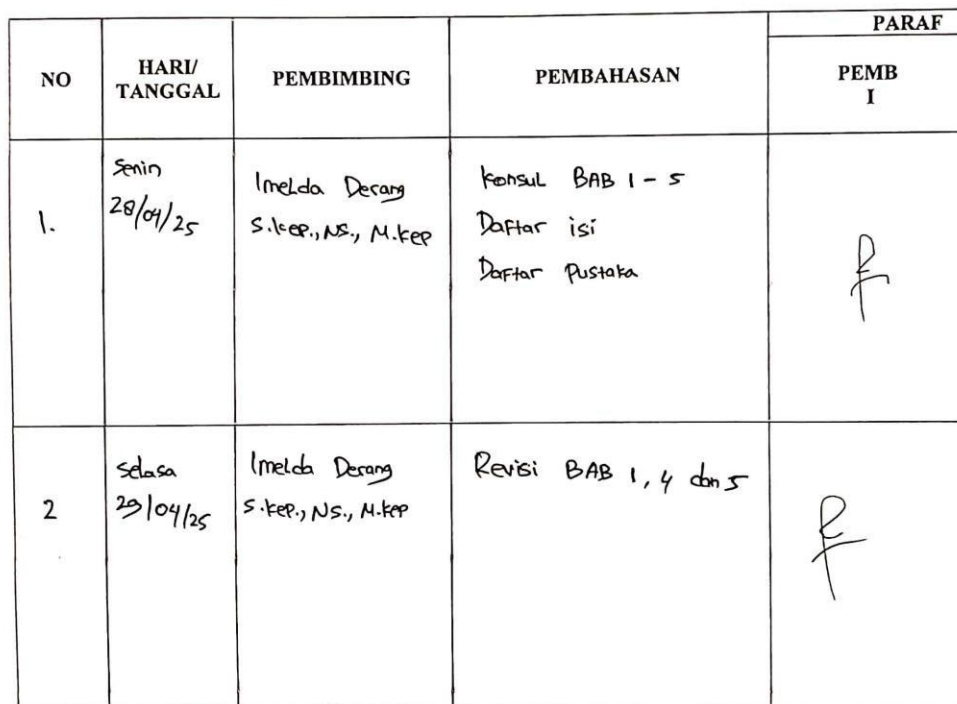 PARAF
NO
HARI/
TANGGAL
PEMBIMBING
PEMBAHASAN
PEMB
I
1.
Senin
28/04/25
Imelda Derang
S.kep., NS., M.kep
Konsul BAB 1 - 5
Daftar isi
Daftar Pustaka
2
Selasa
29/04/25
Imelda Derang
S.kep., NS., M.kep
Revisi BAB 1, 4 dan 5